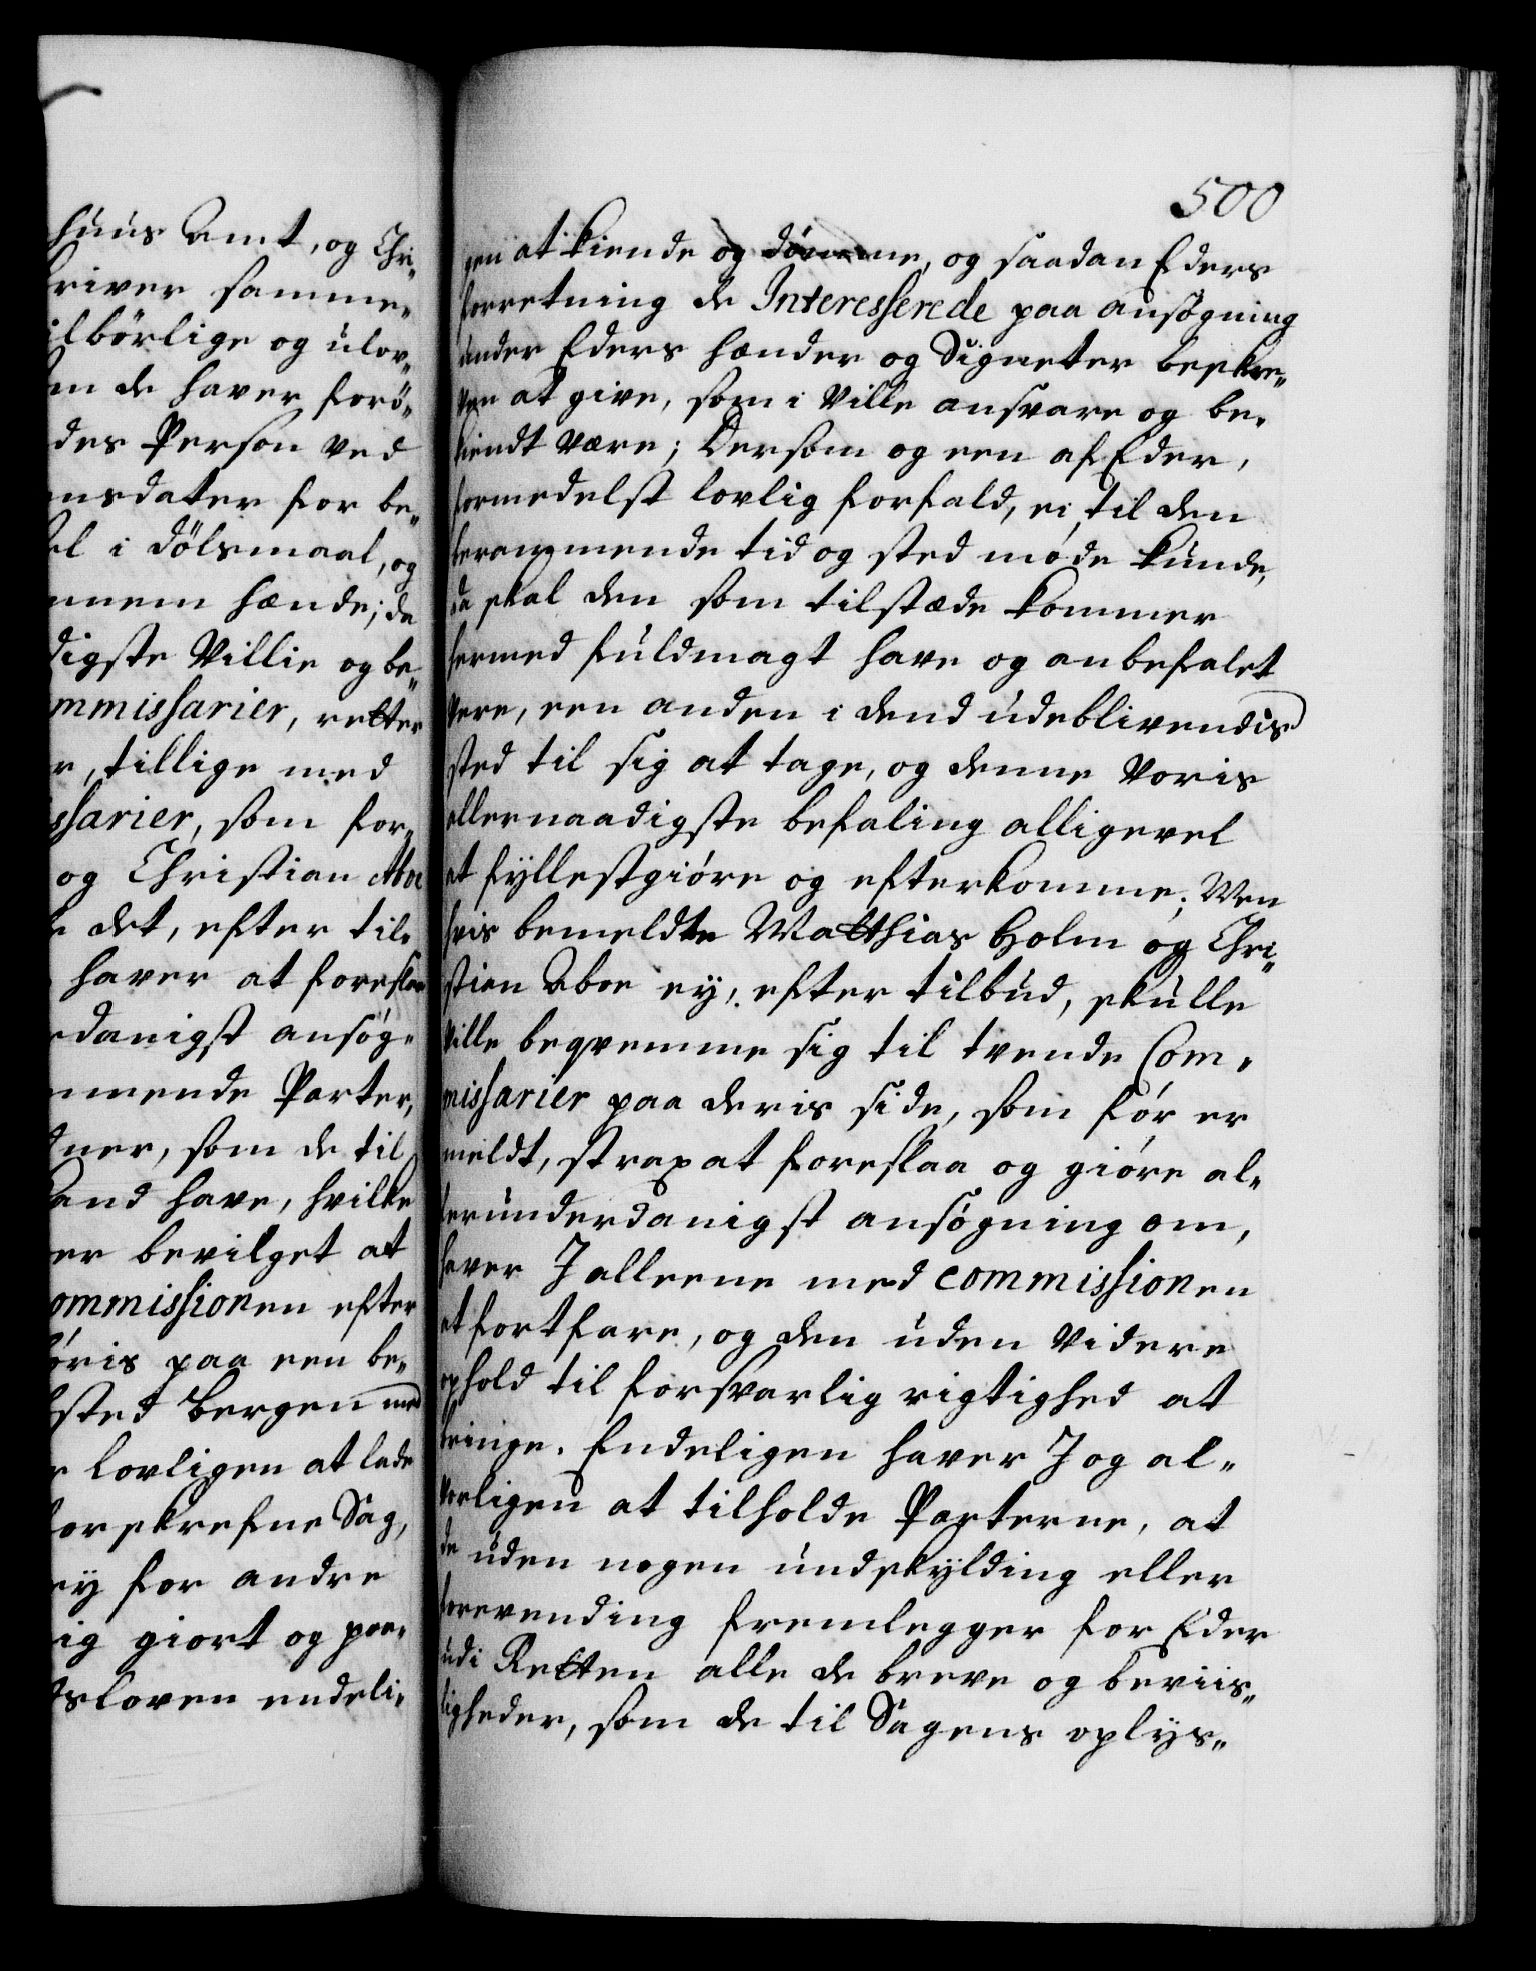 huus Amt, og Chri„
river samme„
ilbörlige og ulov„
m de haver forö„
des Person ved
nsdater for be„
el i dölsmaal, og
nnem hænde; da
digste Villie og be„
mmissarier, retter
r, tillige med
ssarier, som for„
og Christian Aboe
det, efter til„
haver at foreslaa
rdanigst ansög„
mmende Parter,
dner, som de til
and have, hvilke
er bevilget at
ommissionen efter
öris paa een be„
sted Bergen med
r lovligen at lade
forskrefne Sag,
ey for andre
ig giort og paa„
dsloven endeli„
500
gen at kiende og dömme, og saadan Eders
forretning de Interesserede paa ansögning
under Eders hænder og Signeter beskre„
ven at give, som i Ville ansvare og be„
kiendt være; Dersom og een af Eder,
formedelst lovlig forfald, ei til den
berammende tid og sted möde kunde,
da skal den som tilstæde kommer
hermed fuldmagt have og anbefalet
være, een anden i dend udeblivendis
sted til sig at tage, og denne Voris
allernaadigste befaling alligevel
at fyllestgiöre og efterkomme; Men
hvis bemeldte Matthias Holm og Chri„
stian Aboe ey, efter tilbud, skulle
Ville beqvemme sig til tvende Com„
missarier paa deris side, som för er
meldt, strax at foreslaa og giöre al„
lerunderdanigst ansögning om,
haver I alleene med commissionen
at fortfare, og den uden Videre
ophold til forsvarlig rigtighed at
bringe. Endeligen haver I og al„
vorligen at tilholde Parterne, at
de uden nogen undskylding eller
forevending fremlegger for Eder
udi Retten alle de breve og beviis„
ligheder, som de til Sagens oplys„